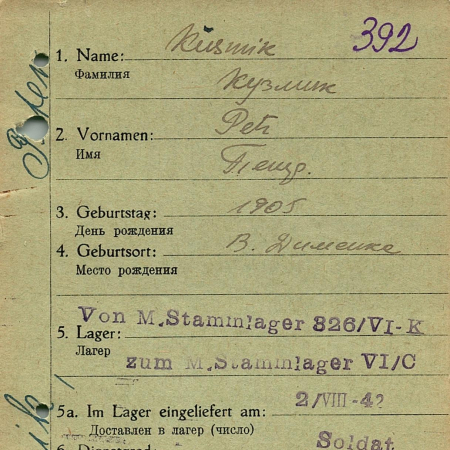 392
1. Name: Kusmik
Фамилия Кузмик
2. Vornamen: Petr
Имя Петр.
3. Geburtstag: 1905
День рождения
4. Geburtsort: В. Дименка
Место рождения
Von M.Stammlager 326/VI-K
5. Lager:
Лагер zum M.Stammlager VI/C
5a. Im Lager eingeliefert am: 2/VIII-42
Доставлен в лагер (число)
Soldat